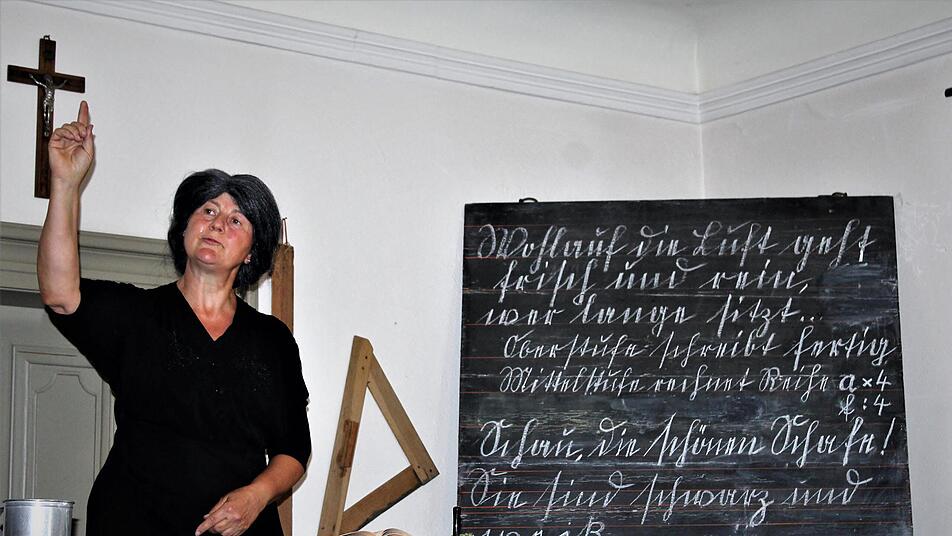 Wohlauf die Luft geht
frisch und rein,
wer lange sitzt..
Oberstufe schreibt fertig
Mittelstufe rechnet Reihe a × 4
b : 4
Schau, die schönen Schafe!
Sie sind schwarz und
weiß